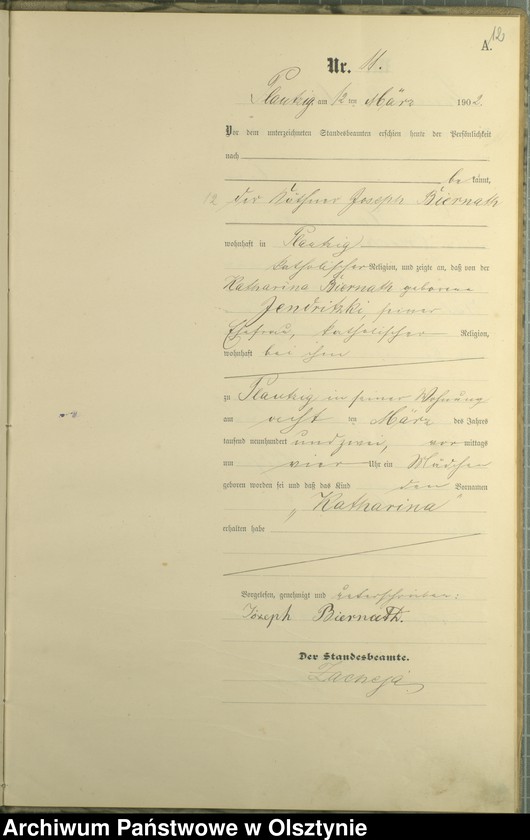 12
A.
Nr. 11.
Plautzig am 12 ten März 1902.
Vor dem unterzeichneten Standesbeamten erschien heute der Persönlichkeit
nach
be kannt,
12 der Käthner Joseph Biernath
wohnhaft in Plautzig
katholischer Religion, und zeigte an, daß von der
Katharina Biernath geborene
Jendritzki, seiner
Ehefrau, katholischer Religion,
wohnhaft bei ihm
zu Plautzig in seiner Wohnung
am acht ten März des Jahres
tausend neunhundert und zwei, vor mittags
um vier Uhr ein Mädchen
geboren worden sei und daß das Kind den Vornamen
„Katharina“
erhalten habe
Vorgelesen, genehmigt und unterschrieben:
Józeph Biernath.
Der Standesbeamte.
Archiwum Państwowe w Olsztynie